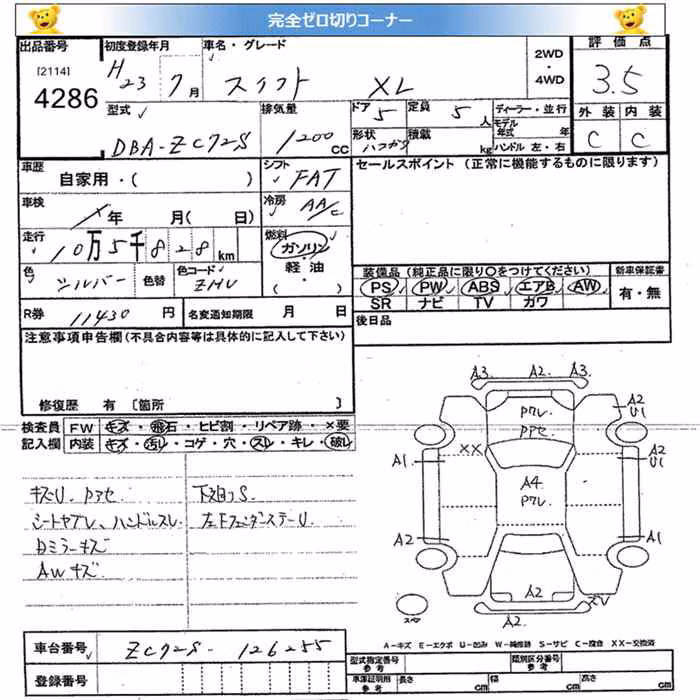 完全ゼロ切りコーナー
出品番号
[2114]
4286
初度登録年月
H23 7月
車名・グレード
スイフト XL
2WD
・
4WD
評価点
3.5
型式
DBA-ZC72S
排気量
1200 cc
ドア 5
定員 5 人
形状
積載 kg
ディーラー・並行
モデル年式 年
ハンドル 左・右
外装 内装
C C
車歴
自家用・( )
シフト FAT
セールスポイント (正常に機能するものに限ります)
車検
年 月( 日)
冷房 AA/C
走行
10万5千828km
燃料
ガソリン・
軽油・
( )
色 シルバー
色替
色コード ZMU
装備品 (純正品に限り○をつけてください)
PS PW ABS エアB AW
SR ナビ TV カワ
新車保証書
有・無
R券 11430 円
名変通知期限 月 日
後日品
注意事項申告欄 (不具合内容等は具体的に記入して下さい)
修復歴 有 〔箇所 〕
検査員記入欄
FW キズ・飛石・ヒビ割・リペア跡・×要
内装 キズ・汚レ・コゲ・穴・スレ・キレ・破レ
キズU. Pアセ
シートヤブレ、ハンドルスレ
Dミラーキズ
AWキズ
下廻りS
左FフェンダーステーU
A3 A2 A3
Pワレ
Pアセ
A2
U1
XX
A1
A2
U1
A4
Pワレ
A2
A1
A2
XV
A2
スペア
A-キズ E-エクボ U-凹み W-補修跡 S-サビ C-腐食 XX-交換済
車台番号 ZC72S-126255
登録番号
型式指定番号 参考
類別区分番号 参考
車庫証明用 参考
長さ cm
幅 cm
高さ cm